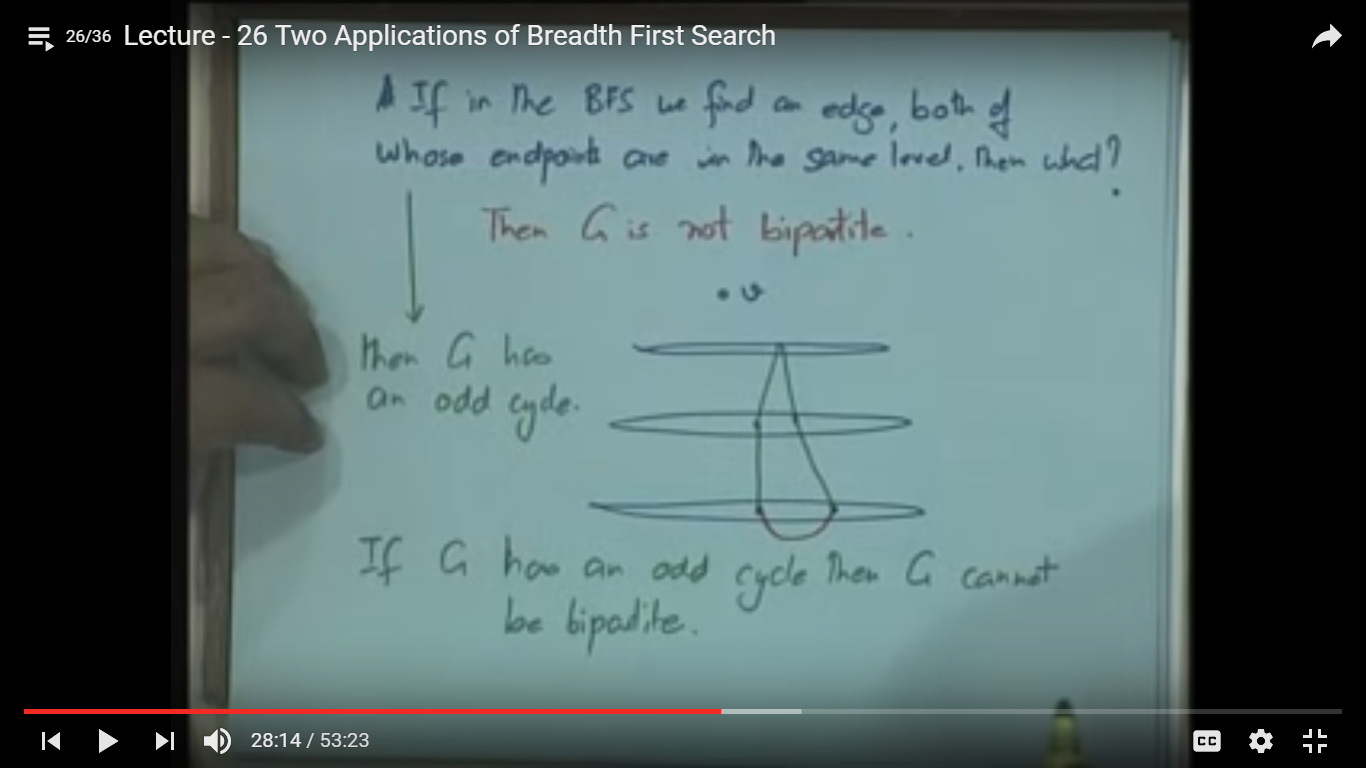 26/36 Lecture - 26 Two Applications of Breadth First Search
If in the BFS we find an edge, both of
whose endpoints are in the same level, then what?
Then G is not bipartite.
v
then G has
an odd cycle.
If G has an odd cycle then G cannot
be bipartite.
28:14 / 53:23
CC